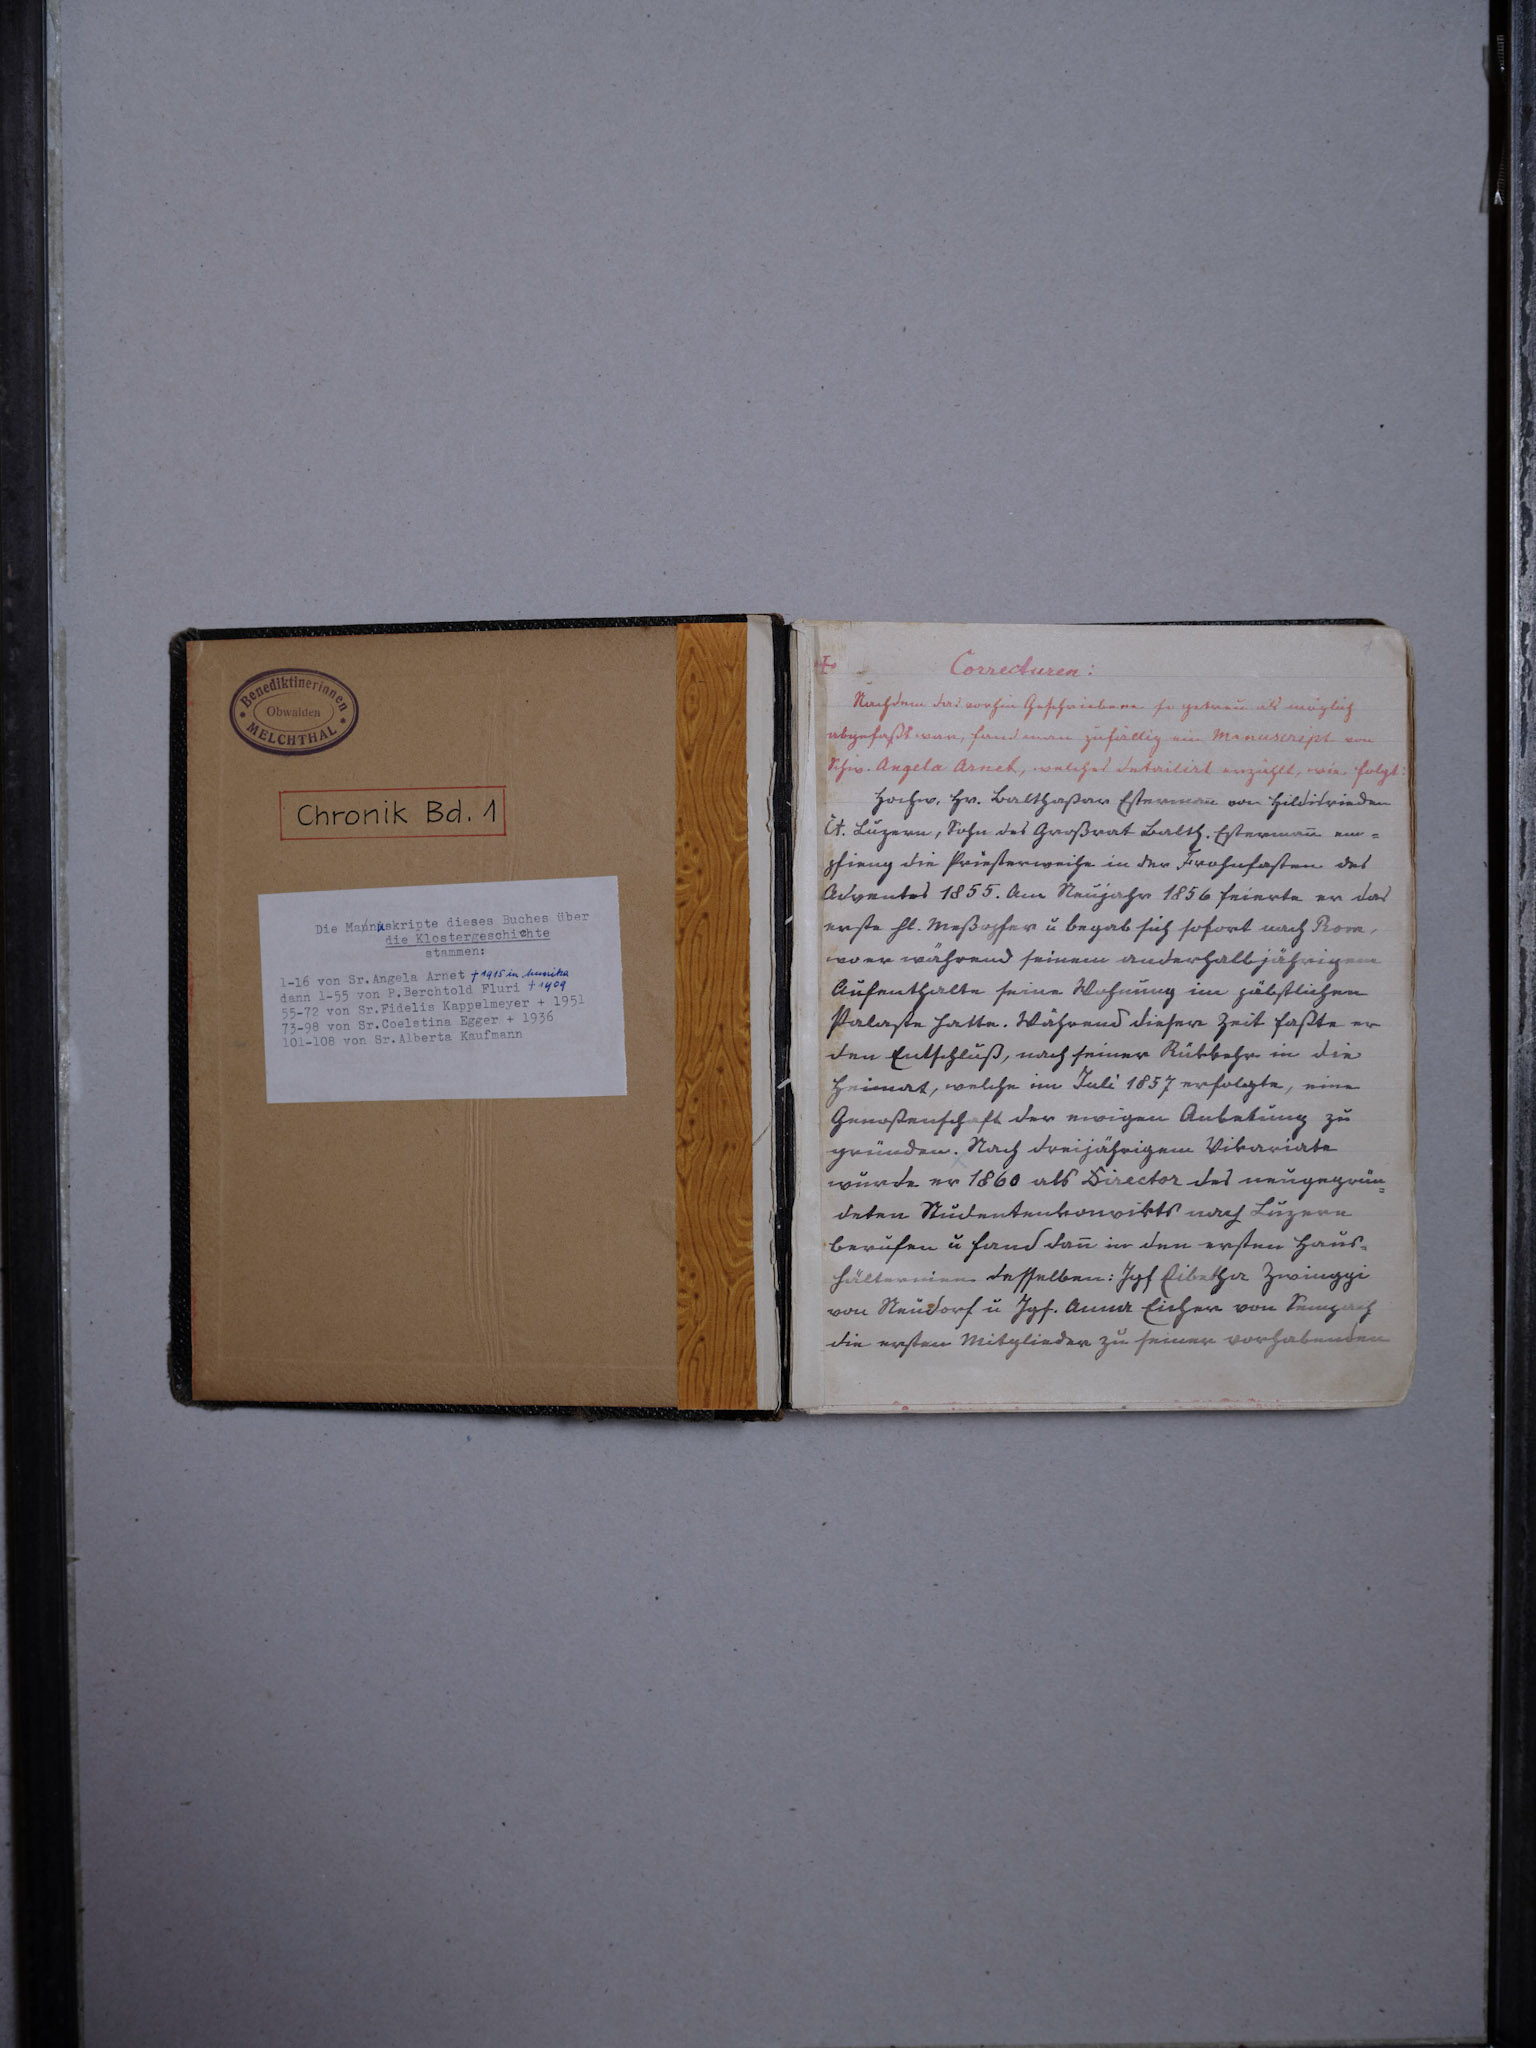 Benediktinerinnen
Obwalden
MELCHTHAL
Chronik Bd. 1
Die Manuskripte dieses Buches über
die Klostergeschichte
stammen:
1-16 von Sr. Angela Arnet † 1915 in Amerika
dann 1-55 von P. Berchtold Fluri † 1909
55-72 von Sr. Fidelis Kappelmeyer + 1951
73-98 von Sr. Coelstina Egger + 1936
101-108 von Sr. Alberta Kaufmann
1
Correcturen:
Nachdem das vorhin Geschriebene so getreu als möglich
abgefaßt war, fand man zufällig ein Manuscript von
Schw. Angela Arnet, welches detailirt erzählt, wie folgt:
Hochw. Hr. Balthaßar Estermann von Hildisrieden
Ct. Luzern, Sohn des Großrat Balth. Estermañ em=
pfieng die Priesterweihe in der Frohnfasten des
Adventes 1855. Am Neujahr 1856 feierte er das
erste hl. Meßopfer u begab sich sofort nach Rom,
wo er während seinem anderhalbjährigem
Aufenthalte seine Wohnung im päbstlichen
Palaste hatte. Während dieser Zeit faßte er
den Entschluß, nach seiner Rükkehr in die
Heimat, welche im Juli 1857 erfolgte, eine
Genoßenschaft der ewigen Anbetung zu
gründen. Nach dreijährigem Vikariate
wurde er 1860 als Director des neugegrün=
deten Studentenkonvikts nach Luzern
berufen u fand dañ in den ersten Haus=
hälterinen desselben: Jgf Elibetha Zwinggi
von Neudorf u Jgf. Anna Eicher von Sempach
die ersten Mitglieder zu seiner vorhabenden